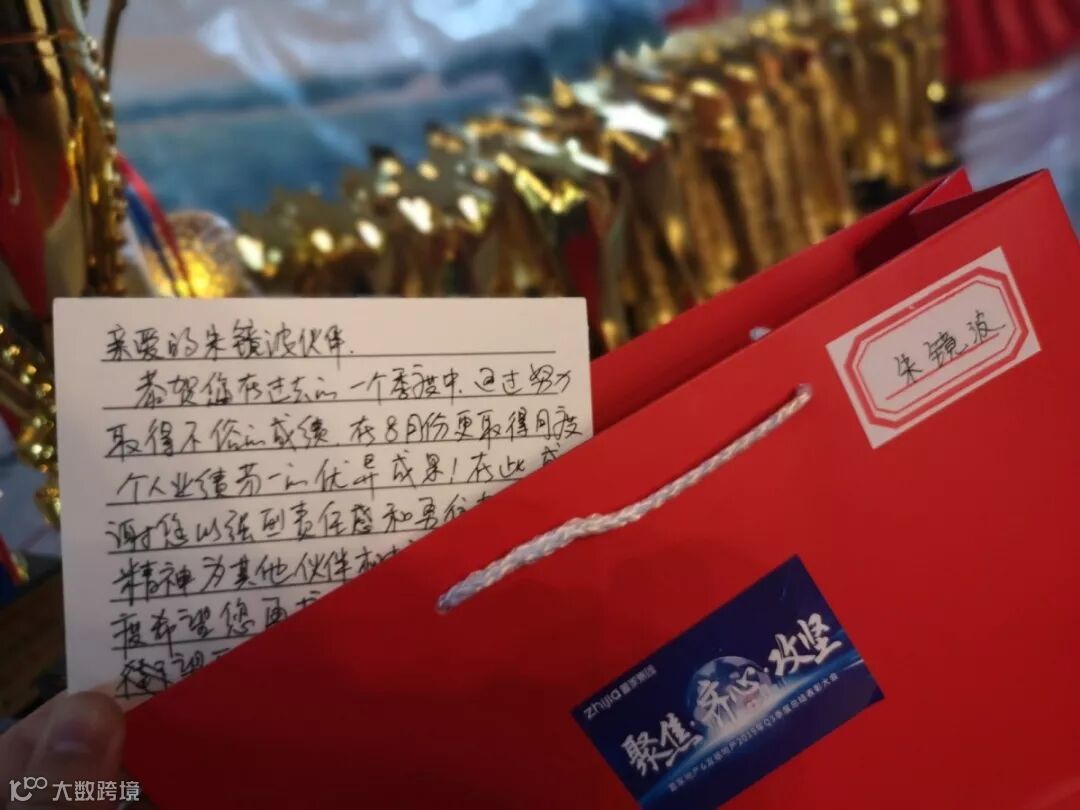 亲爱的朱镜波伙伴.
恭贺您在过去的一个季度中.通过努力
取得不俗的成绩.在8月份更取得月度
个人业绩第一的优异成果！在此感
谢您以强烈责任感和勇往
精神为其他伙伴树
度希望您再
朱镜波
Zhijia
聚焦·齐心·攻坚
2019年Q3季度总结表彰大会
大数跨境